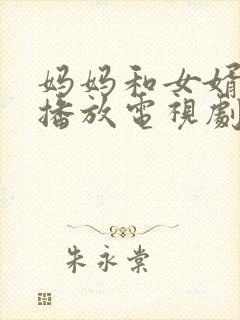 妈妈和女婿
播放電視劇
朱永棠